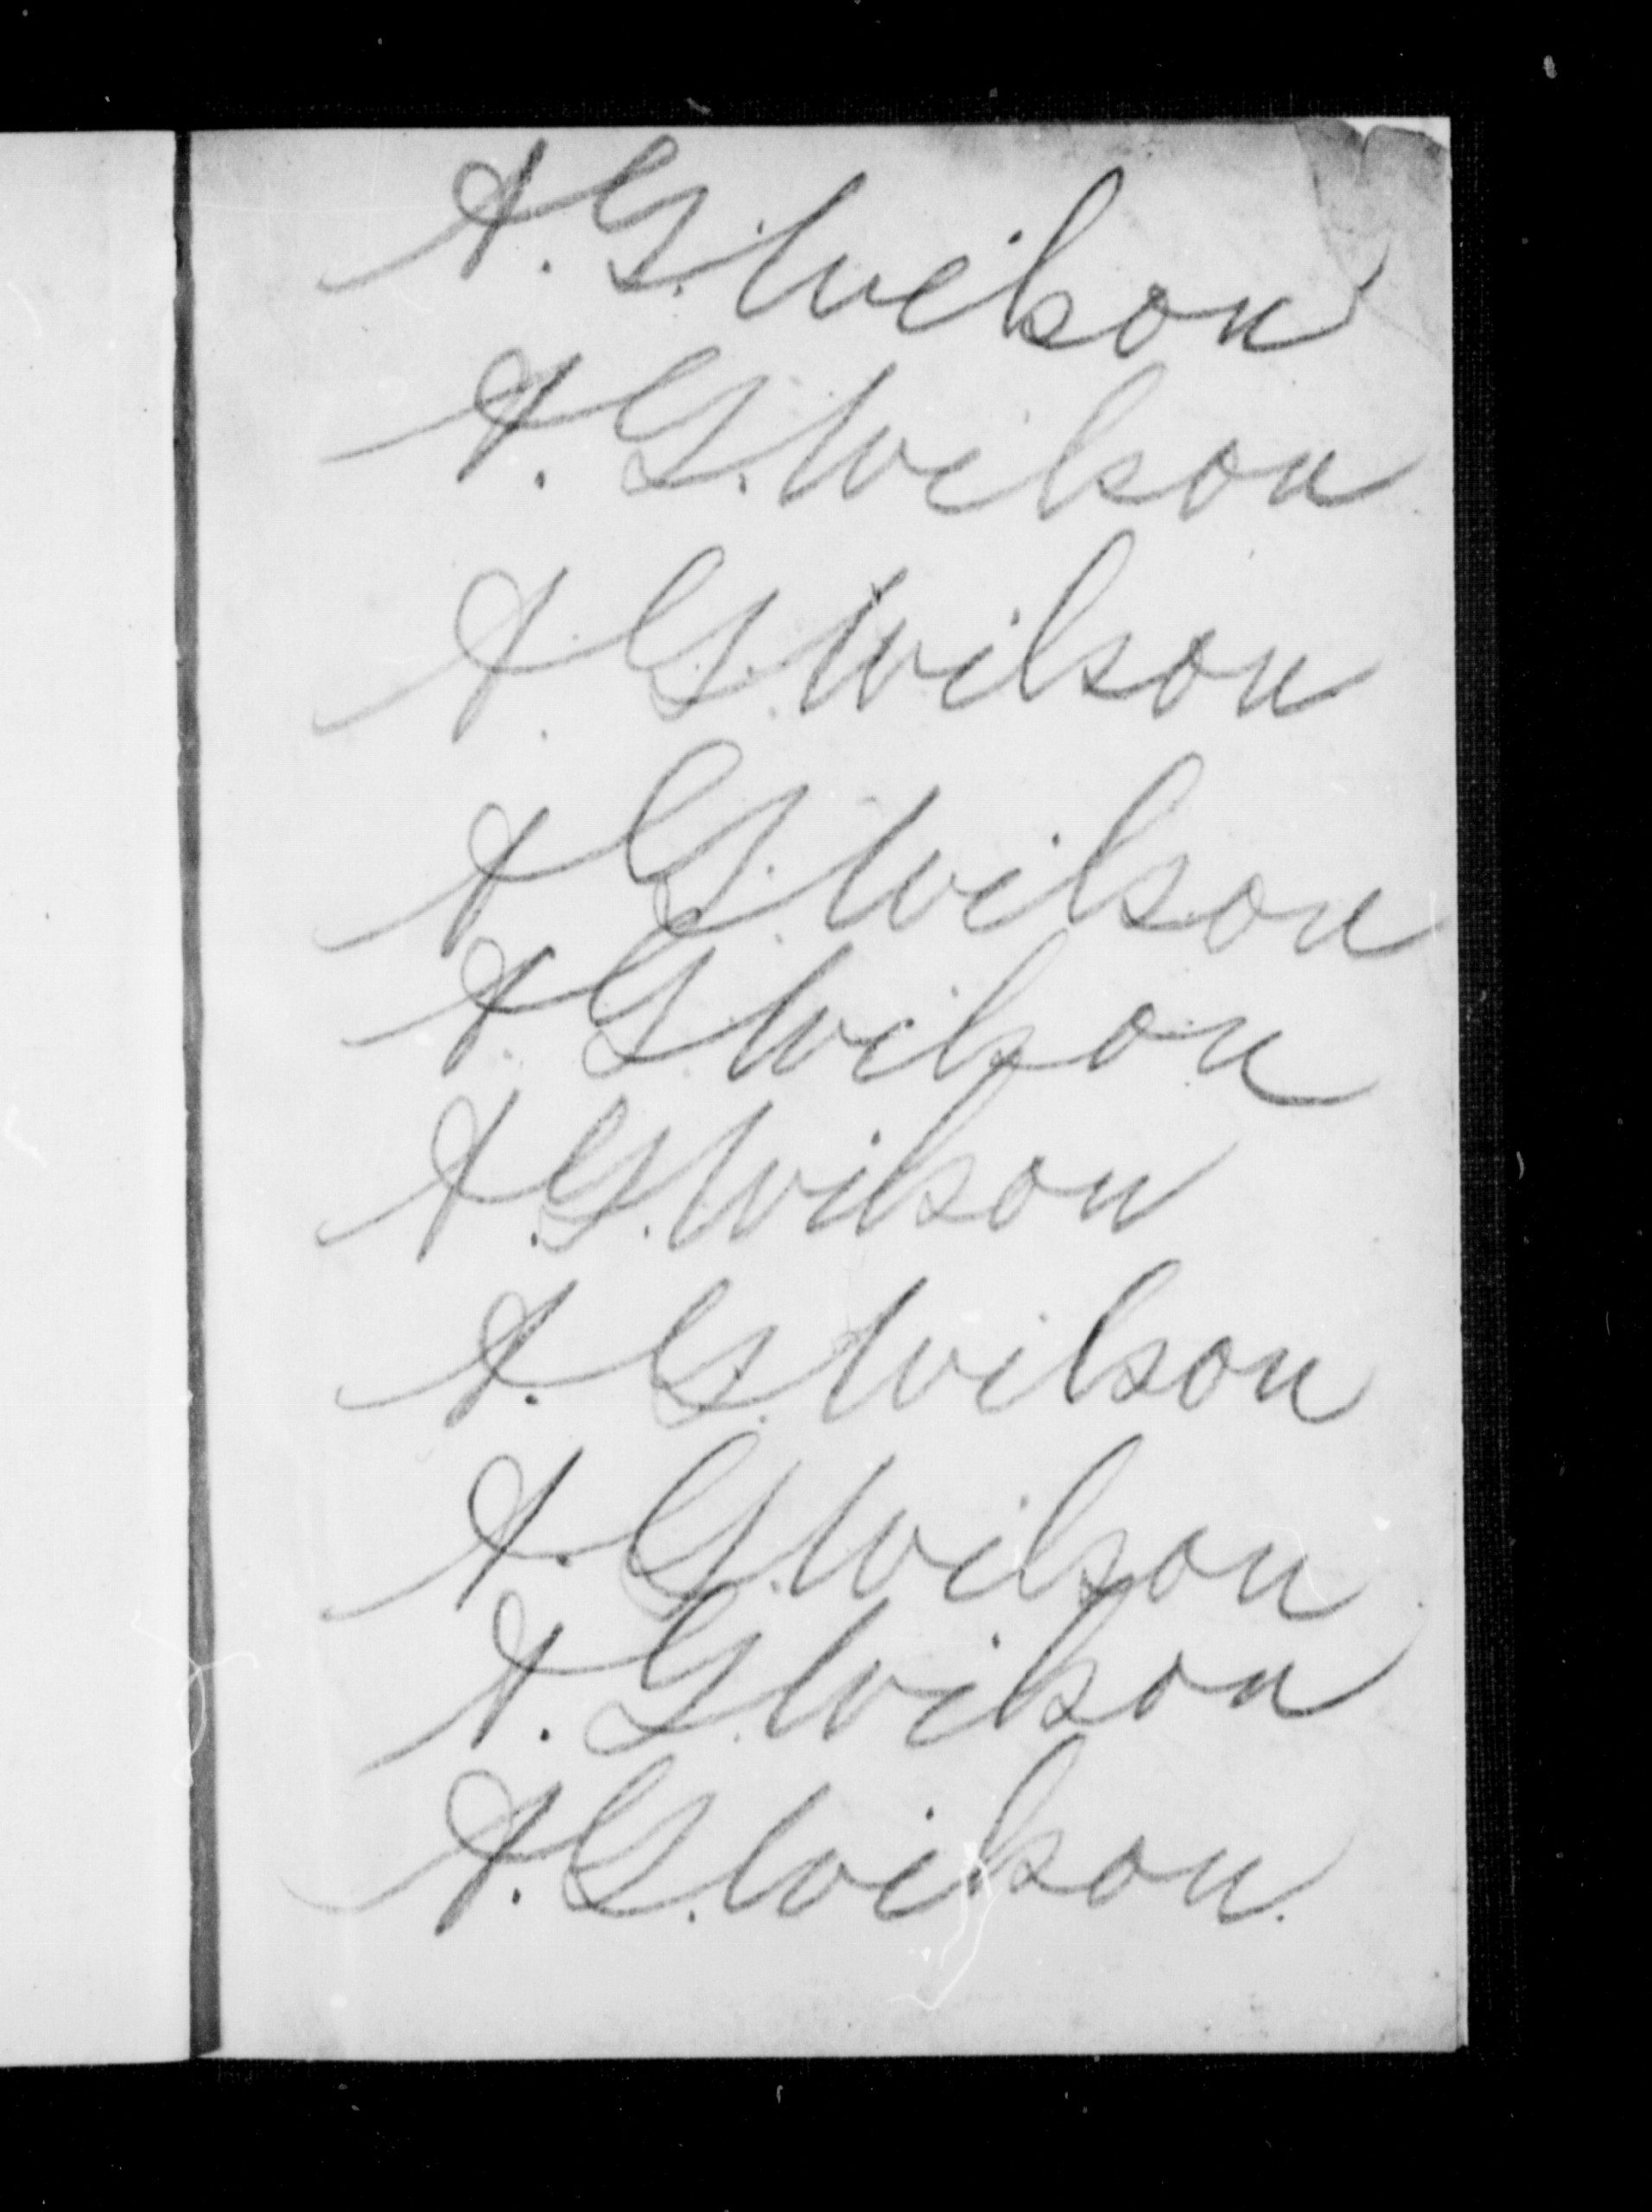 A. G. Wilson
A. G. Wilson
A. G. Wilson
A G. Wilson
A. G. Wilson
A. G. Wilson
A. G. Wilson
A. G. Wilson
A. G. Wilson
A. G. Wilson.